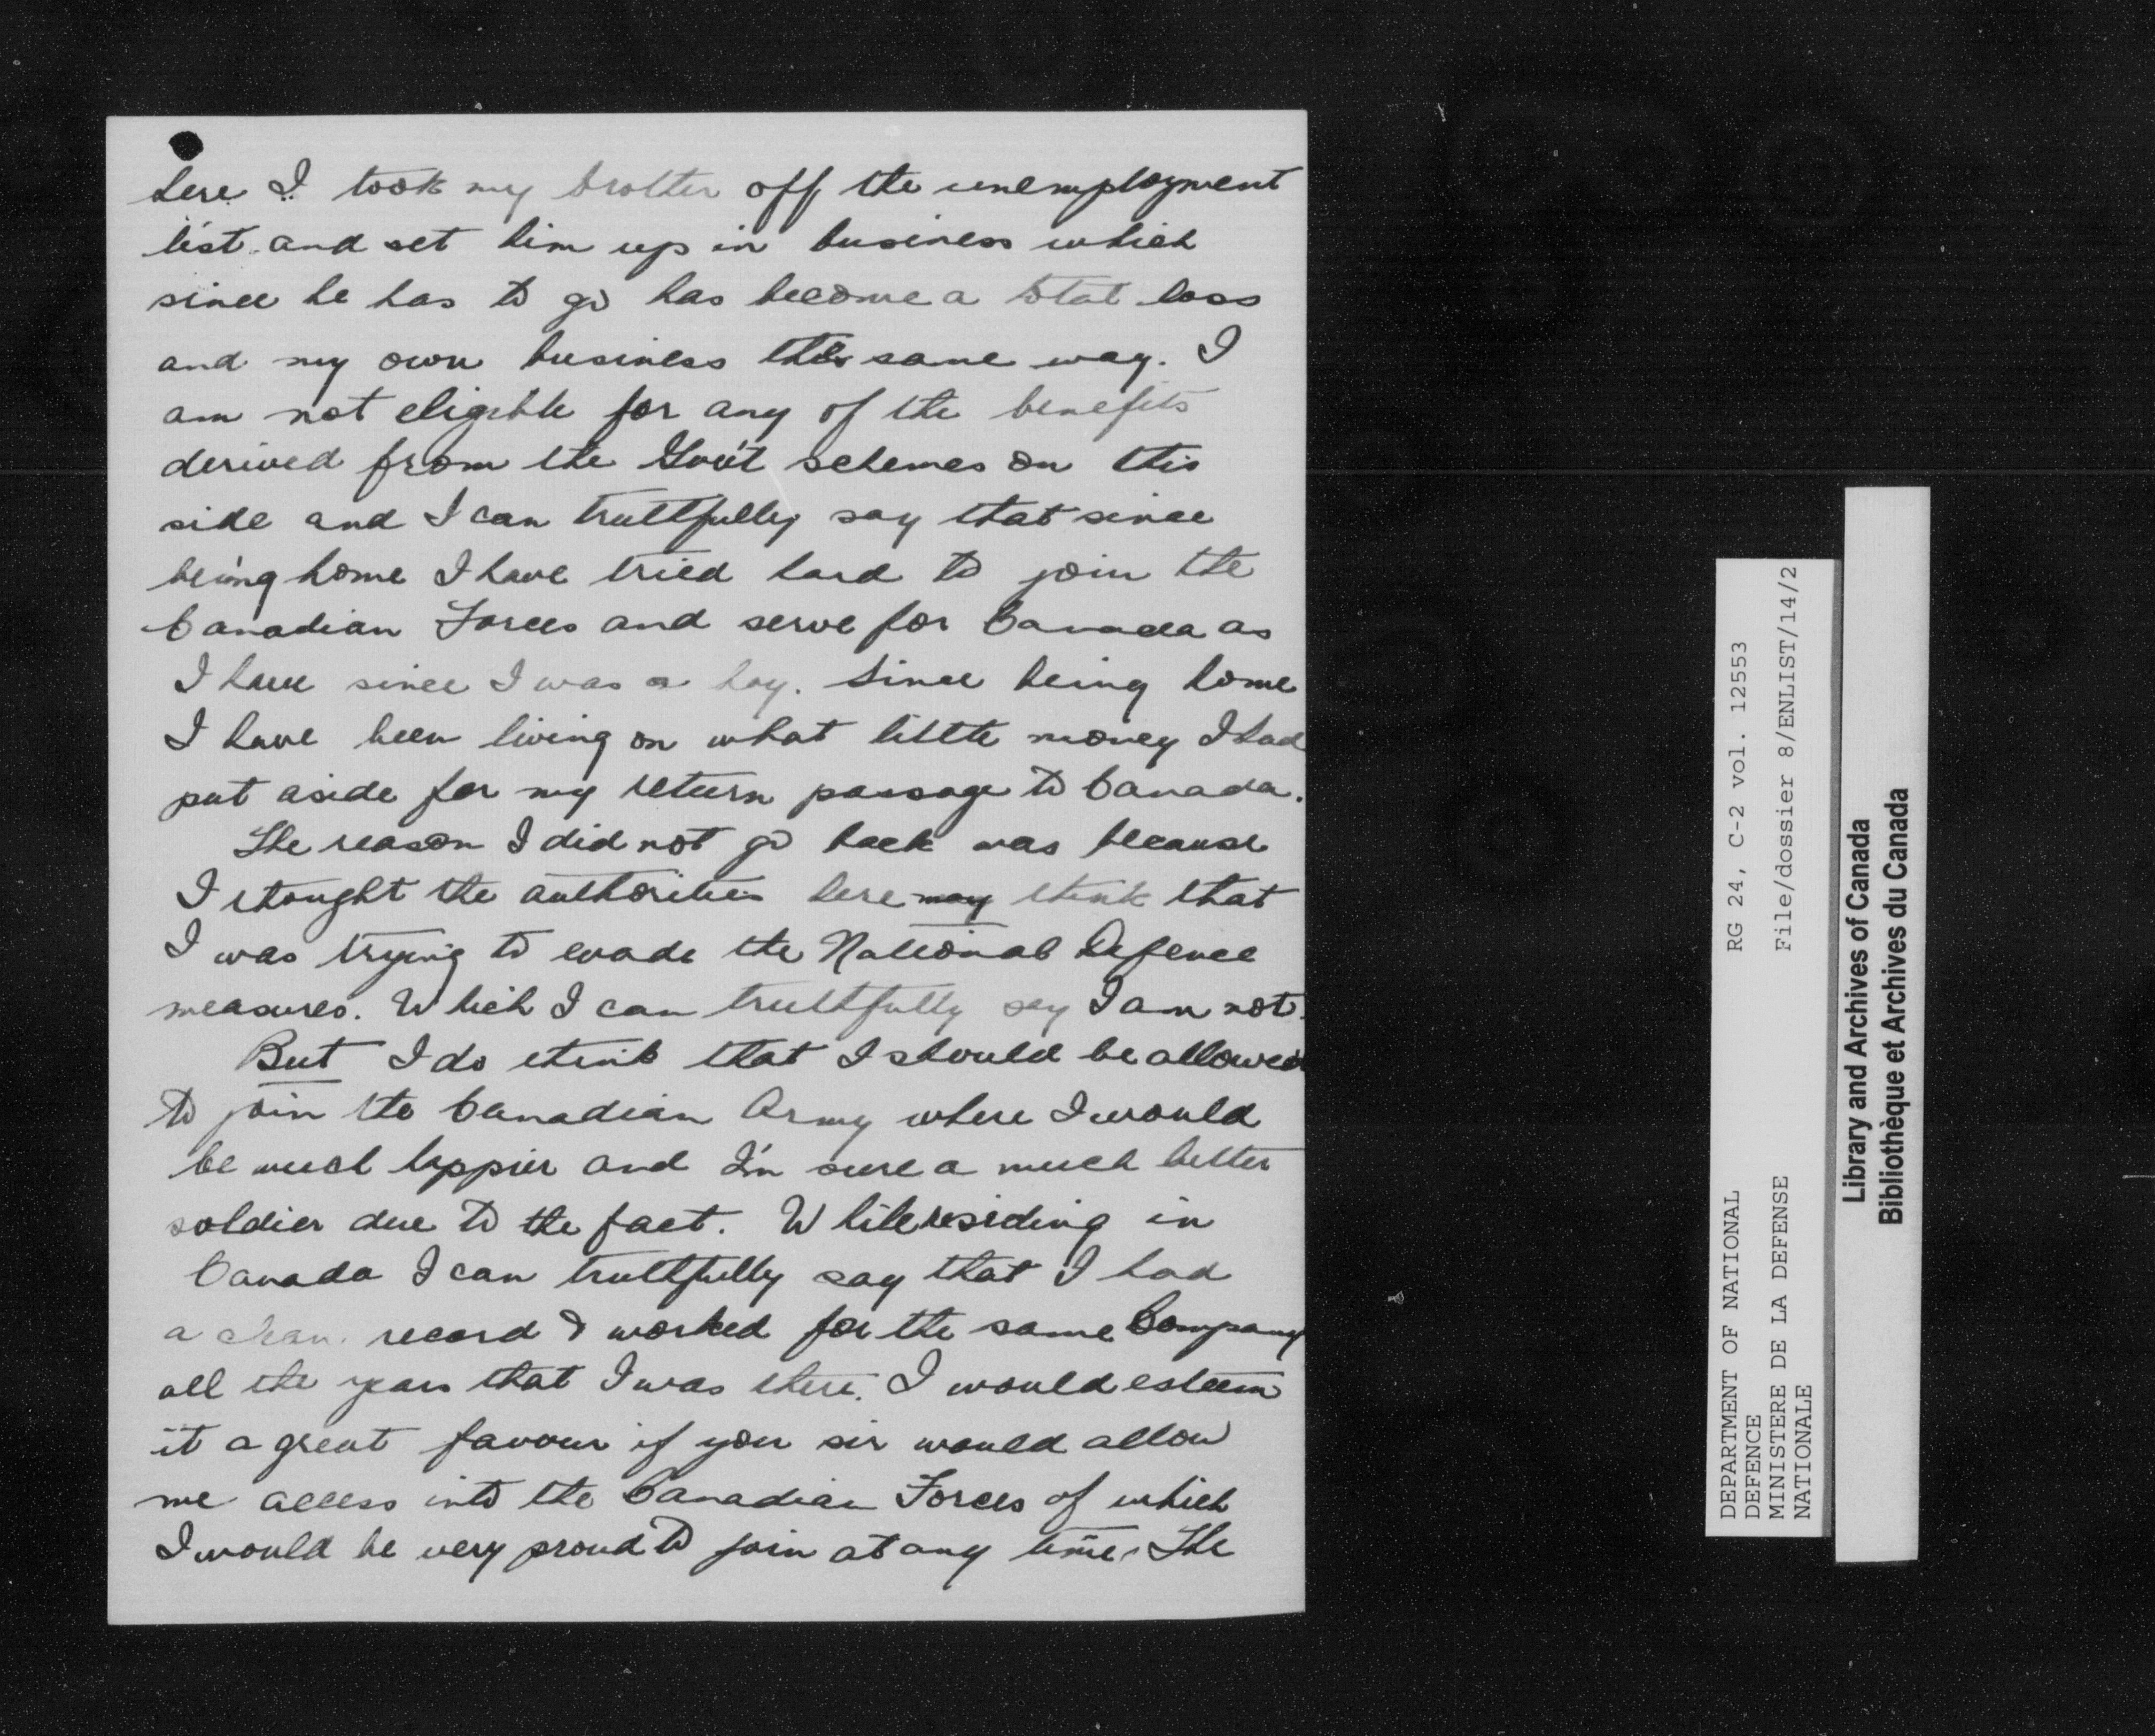 here I took my brother off the unemployment
list and set him up in business which
since he has to go has become a total loss
and my own business the same way. I
am not eligible for any of the benefits
derived from the Gov't schemes on this
side and I can truthfully say that since
being home I have tried hard to join the
Canadian Forces and serve for Canada as
I have since I was a boy. Since being home
I have been living on what little money I had
put aside for my return passage to Canada.
The reason I did not go back was because
I thought the authorities here may think that
I was trying to evade the National Defence
measures. Which I can truthfully say I am not.
But I do think that I should be allowed
to join the Canadian Army where I would
be much happier and I'm sure a much better
soldier due to the fact. While residing in
Canada I can truthfully say that I had
a clean record I worked for the same Company
all the years that I was there. I would esteem
it a great favour if you sir would allow
me access into the Canadian Forces of which
I would be very proud to join at any time. The
DEPARTMENT OF NATIONAL RG 24, C-2 vol. 12553
DEFENCE
MINISTERE DE LA DEFENSE File/dossier 8/ENLIST/14/2
NATIONALE
Library and Archives of Canada
Bibliothèque et Archives du Canada